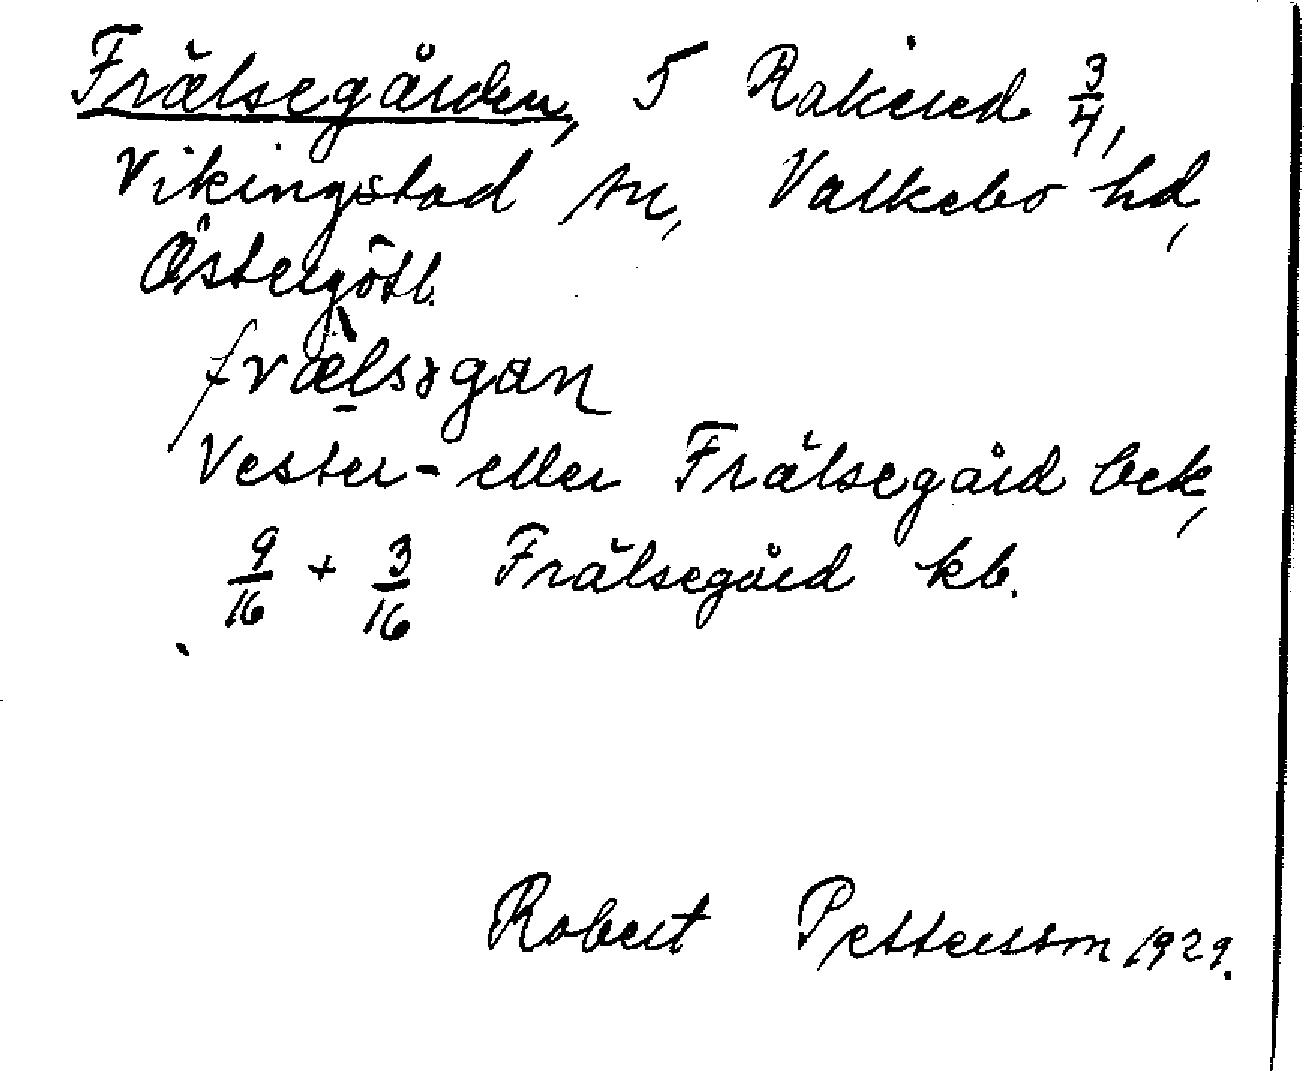 Frälsegården, 5 Rakered 3/4,
Vikingstad sn, Valkebo hd,
Östergötl.
frälsəgan
Vester- eller Frälsegård bek,
9/16 + 3/16 Frälsegård kb.
Robert Pettersson 1929.